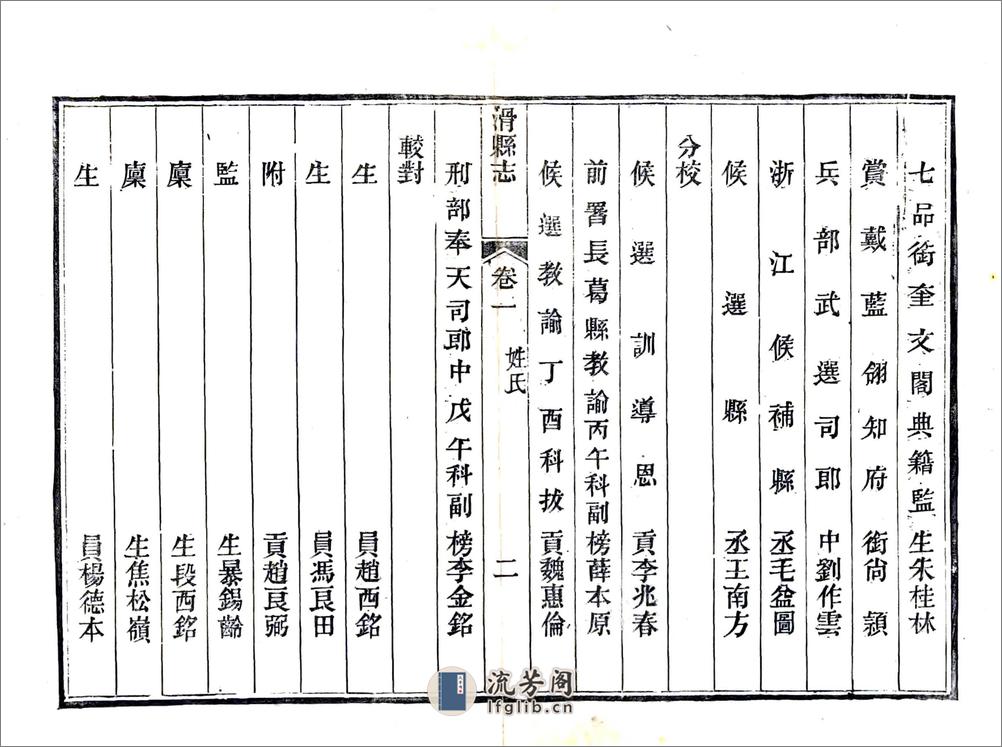 七品銜奎文閣典籍監生朱桂林
賞戴藍翎知府銜尙頴
兵部武選司郎中劉作雲
浙江候補縣丞毛盆圖
候選縣丞王南方
分校
候選訓導恩貢李兆春
前署長葛縣教諭丙午科副榜薛本原
候選教諭丁酉科拔貢魏惠倫
滑縣志
卷一
姓氏
二
刑部奉天司郎中戊午科副榜李金銘
較對
生員趙西銘
生員馮良田
附貢趙良弼
監生暴錫齡
廩生段西銘
廩生焦松嶺
生員楊德本
流芳阁
lfglib.cn